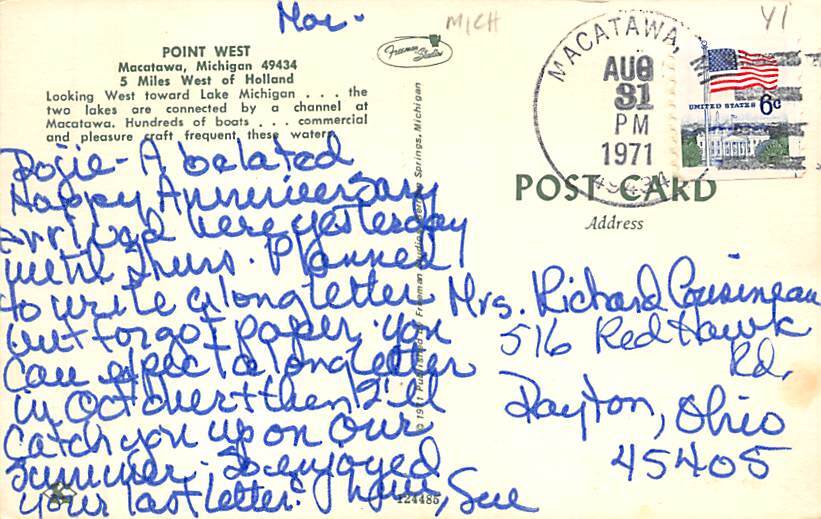 Mon.
MICH
Y1
POINT WEST
Macatawa, Michigan 49434
5 Miles West of Holland
Looking West toward Lake Michigan . . . the
two lakes are connected by a channel at
Macatawa. Hundreds of boats . . . commercial
and pleasure craft frequent these waters.
Freeman Studios
MACATAWA, MI
AUG
31
PM
1971
49434
UNITED STATES 6c
POST CARD
Address
Dosie - A belated
Happy Anniversary
Arrived here yesterday
until Thurs. Planned
to write a long letter
but forgot paper. You
can expect a long letter
in Oct over & then I'll
catch you up on our
summer. So enjoyed
your last letter. Love, Sue
Mrs. Richard Cousineau
516 Red Hawk
Rd.
Dayton, Ohio
45405
© 1971 Published by Freeman Studios, Springs, Michigan
124485